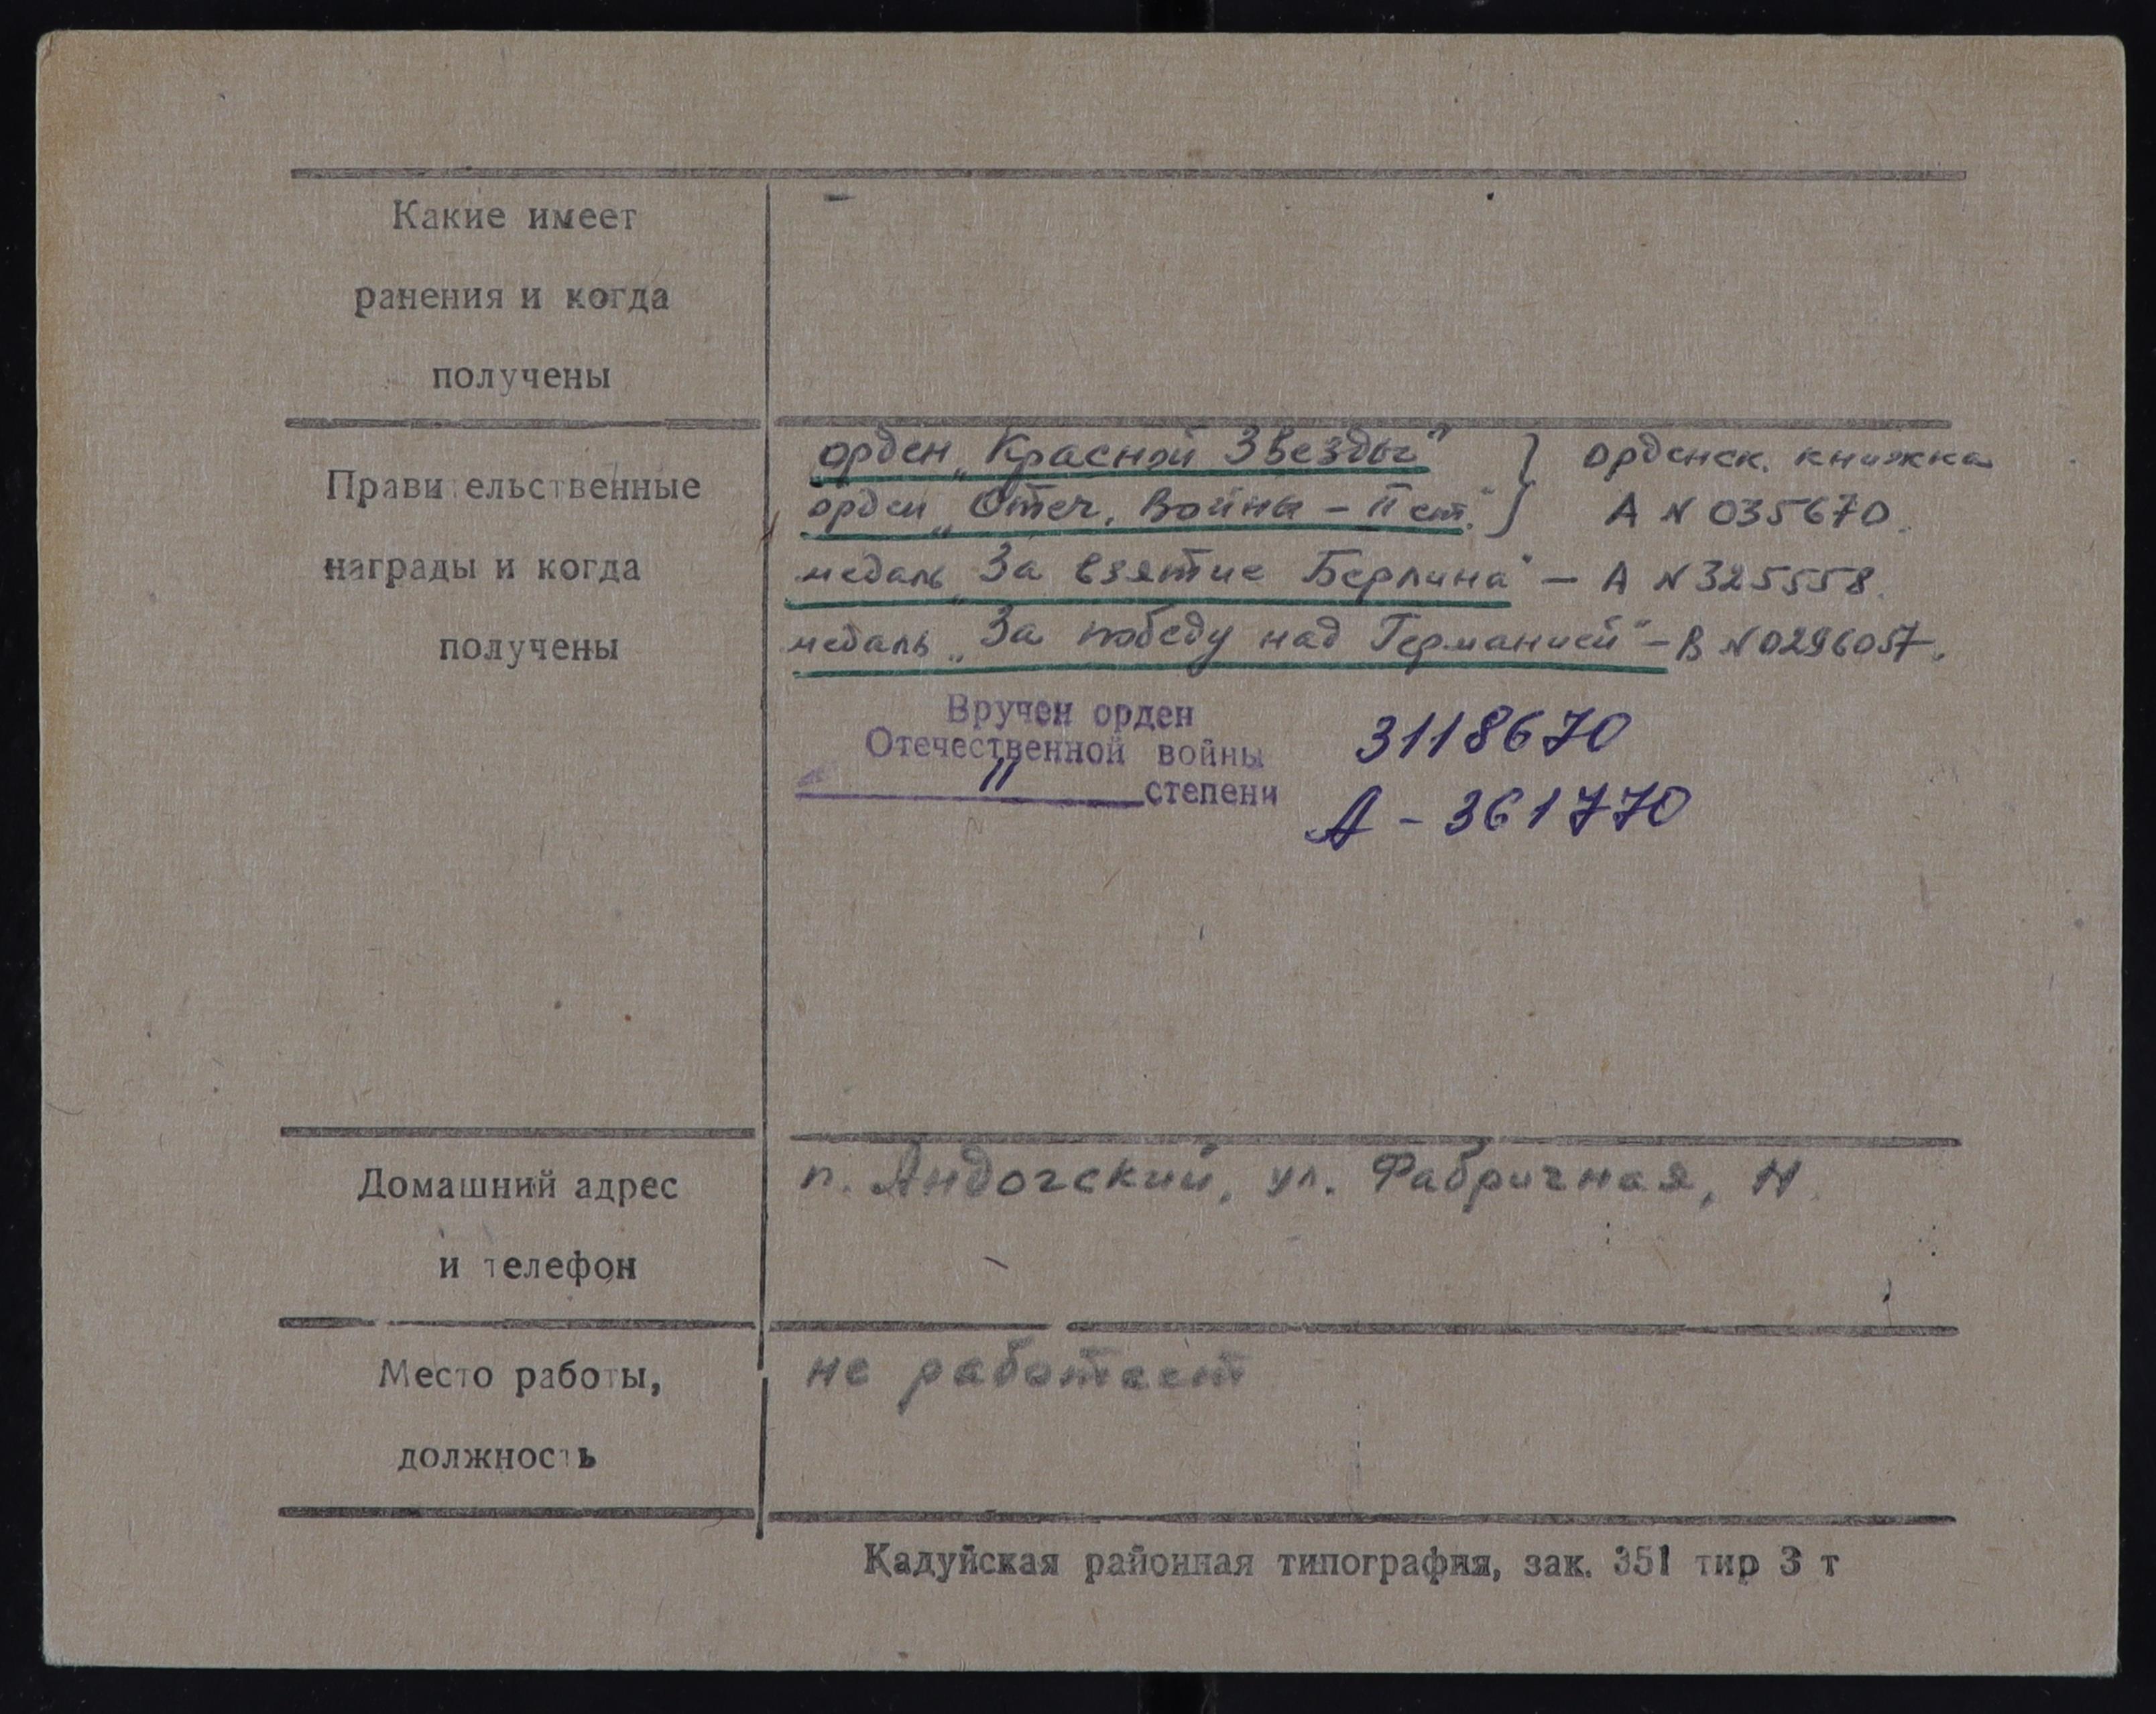 Какие имеет
ранения и когда
получены
–
Правительственные
награды и когда
получены
орден „Красной Звезды“ } орденск. книжка
орден „Отеч. Войны – II ст.“ } А № 035670.
медаль „За взятие Берлина“ – А № 325558.
медаль „За победу над Германией“ – В № 0296057.
Вручен орден
Отечественной войны
II степени
3118670
А – 361770
Домашний адрес
и телефон
п. Андогский, ул. Фабричная,
Место работы,
должность
не работает
Кадуйская районная типография, зак. 351 тир 3 т